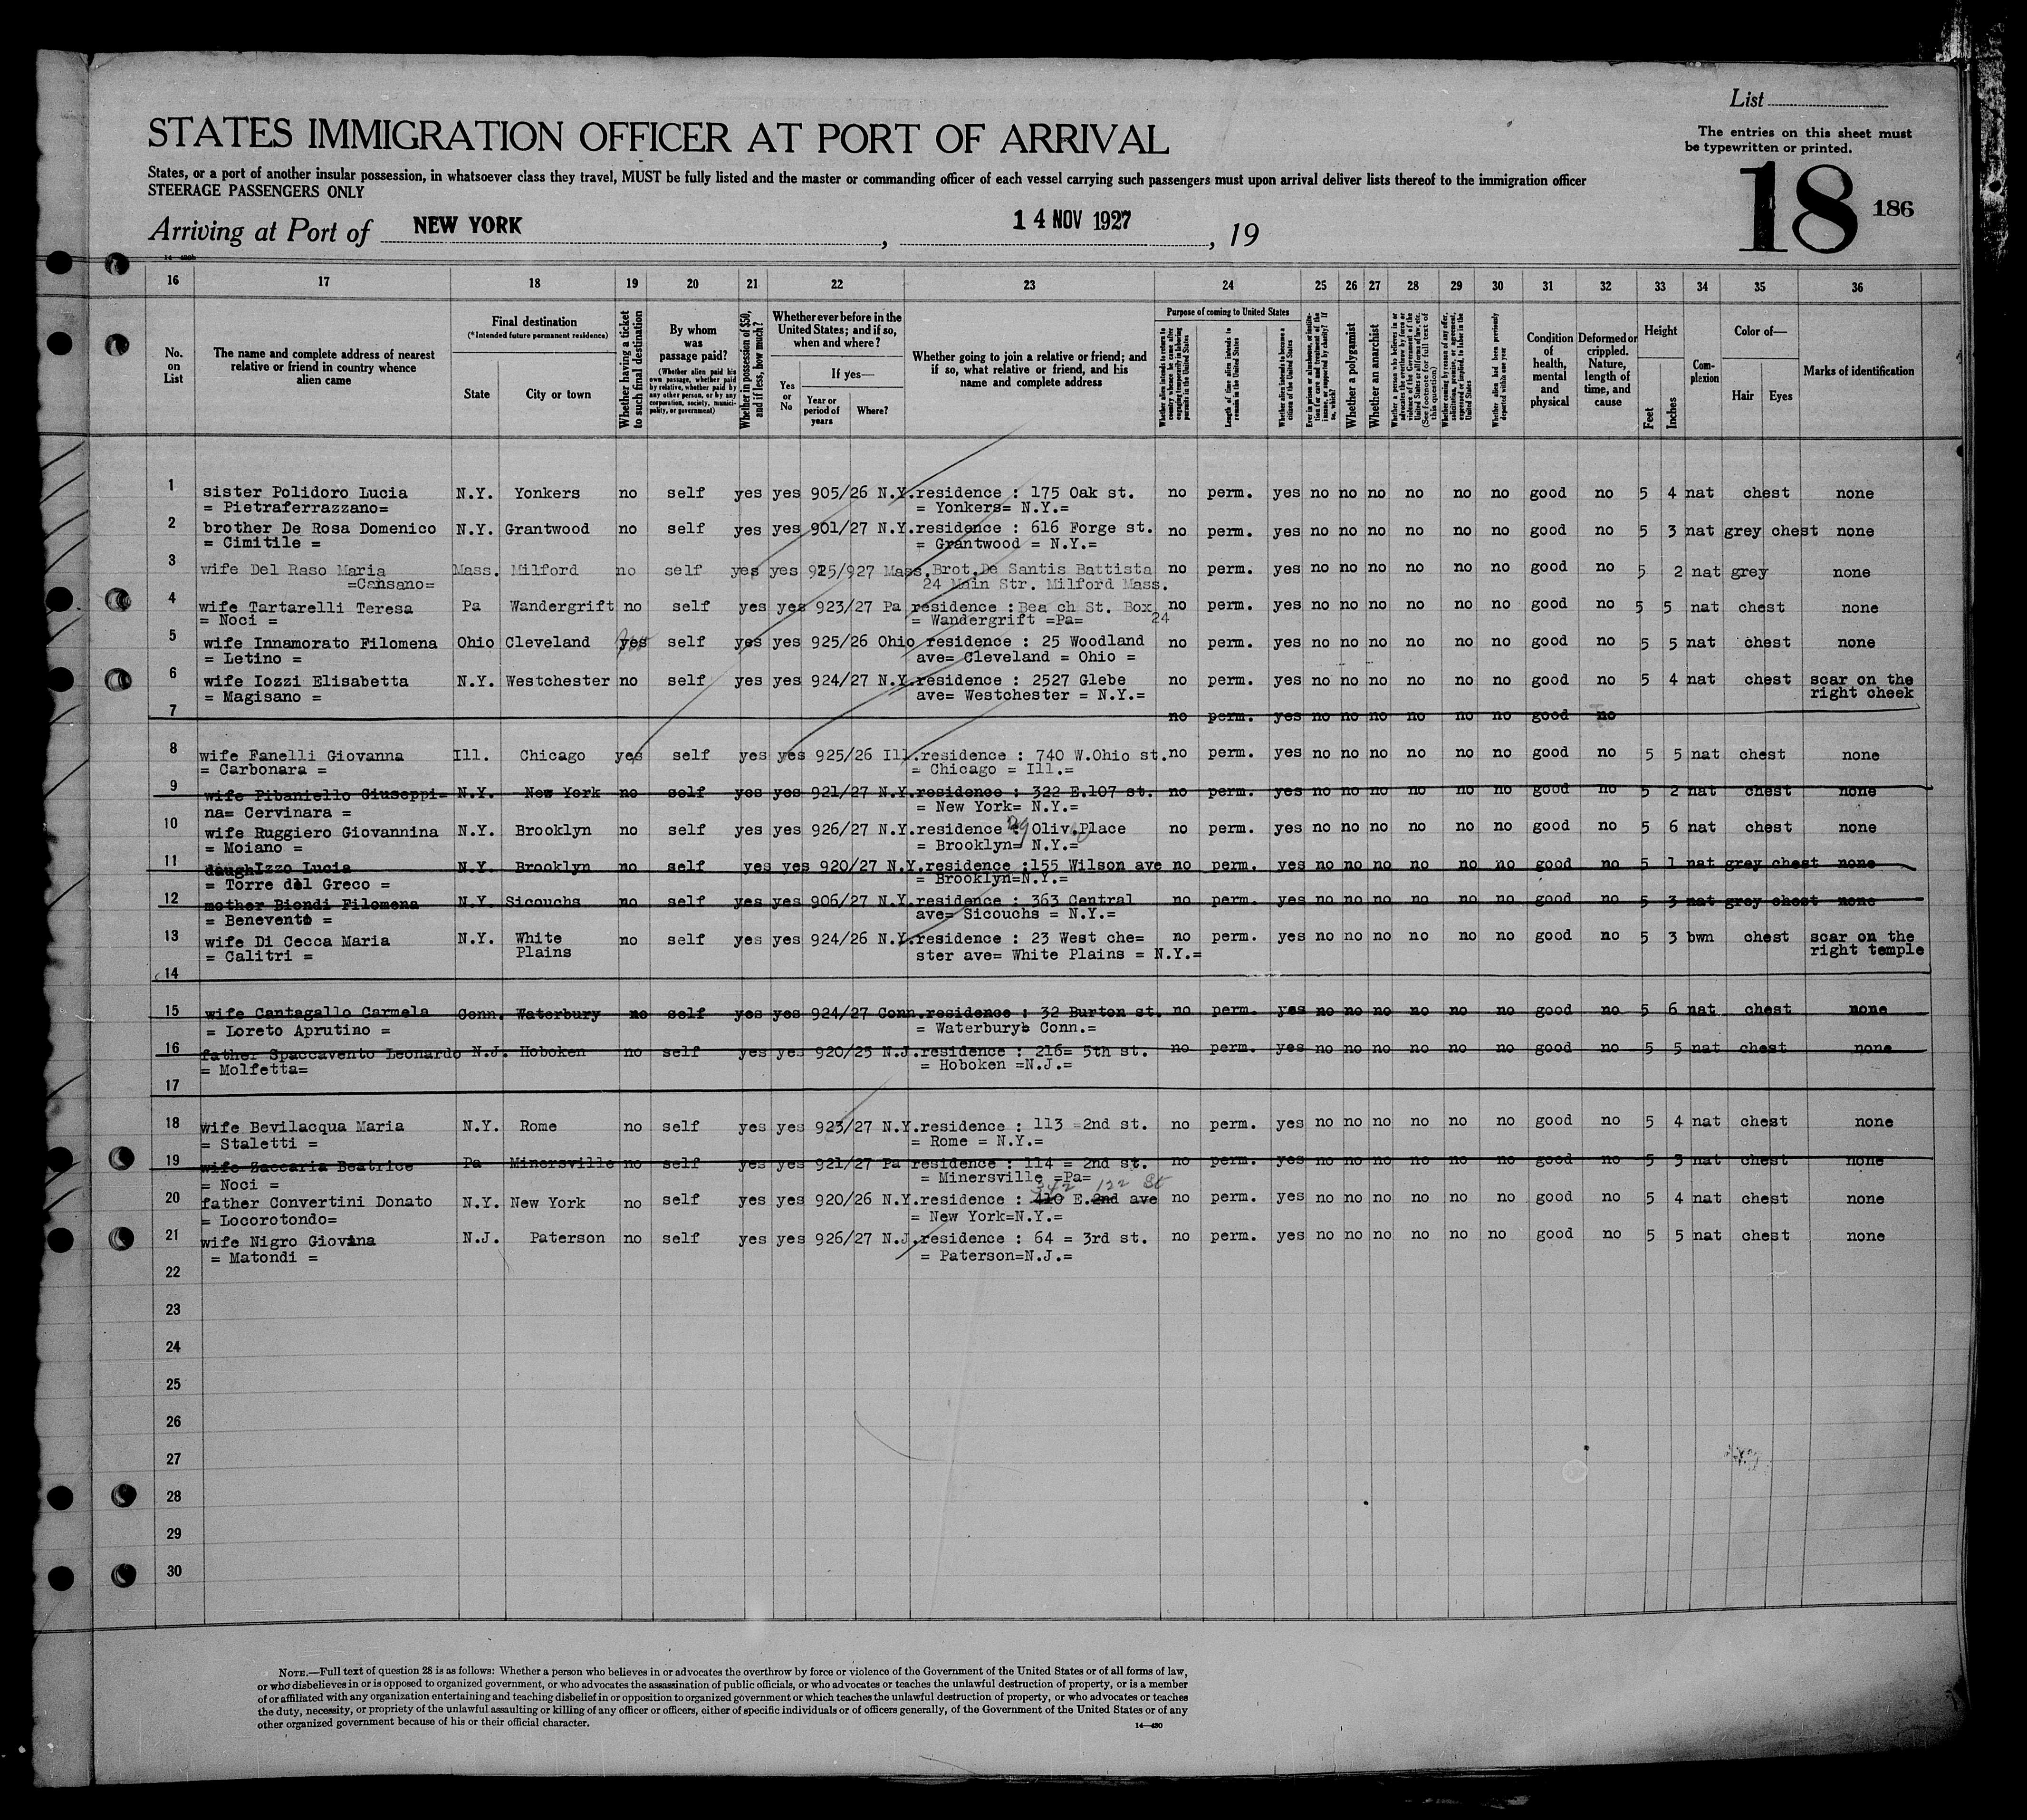 List
STATES IMMIGRATION OFFICER AT PORT OF ARRIVAL
The entries on this sheet must
be typewritten or printed.
States, or a port of another insular possession, in whatsoever class they travel, MUST be fully listed and the master or commanding officer of each vessel carrying such passengers must upon arrival deliver lists thereof to the immigration officer
STEERAGE PASSENGERS ONLY
18 186
Arriving at Port of NEW YORK, 14 NOV 1927, 19
16 17 18 19 20 21 22 23 24 25 26 27 28 29 30 31 32 33 34 35 36
No. on List
The name and complete address of nearest relative or friend in country whence alien came
Final destination
(*Intended future permanent residence)
State
City or town
Whether having a ticket to such final destination
By whom was passage paid?
(Whether alien paid his own passage, whether paid by relative, whether paid by any other person, or by any corporation, society, municipality, or government)
Whether in possession of $50, and if less, how much?
Whether ever before in the United States; and if so, when and where?
Yes or No
If yes—
Year or period of years
Where?
Whether going to join a relative or friend; and if so, what relative or friend, and his name and complete address
Purpose of coming to United States
Length of time alien intends to remain in the United States
Whether alien intends to become a citizen of the United States
Whether a polygamist
Whether an anarchist
Whether alien had been previously deported within one year
Condition of health, mental and physical
Deformed or crippled. Nature, length of time, and cause
Height
Feet
Inches
Complexion
Color of—
Hair
Eyes
Marks of identification
1 sister Polidoro Lucia N.Y. Yonkers no self yes yes 905/26 N.Y. residence : 175 Oak st. no perm. yes no no no no no no good no 5 4 nat chest none
= Pietraferrazzano= = Yonkers= N.Y.=
2 brother De Rosa Domenico N.Y. Grantwood no self yes yes 901/27 N.Y. residence : 616 Forge st. no perm. yes no no no no no no good no 5 3 nat grey chest none
= Cimitile = = Grantwood = N.Y.=
3 wife Del Raso Maria Mass. Milford no self yes yes 925/927 Mass. Brot. De Santis Battista no perm. yes no no no no no no good no 5 2 nat grey none
=Cansano= 24 Main Str. Milford Mass.
4 wife Tartarelli Teresa Pa Wandergrift no self yes yes 923/27 Pa residence :Bea ch St. Box no perm. yes no no no no no no good no 5 5 nat chest none
= Noci = = Wandergrift =Pa= 24
5 wife Innamorato Filomena Ohio Cleveland yes self yes yes 925/26 Ohio residence : 25 Woodland no perm. yes no no no no no no good no 5 5 nat chest none
= Letino = ave= Cleveland = Ohio =
6 wife Iozzi Elisabetta N.Y. Westchester no self yes yes 924/27 N.Y. residence : 2527 Glebe no perm. yes no no no no no no good no 5 4 nat chest scar on the
= Magisano = ave= Westchester = N.Y.= right cheek
7 no perm. yes no no no no no no good no
8 wife Fanelli Giovanna Ill. Chicago yes self yes yes 925/26 Ill. residence : 740 W.Ohio st. no perm. yes no no no no no no good no 5 5 nat chest none
= Carbonara = = Chicago = Ill.=
9 wife Pibaniello Giuseppi= N.Y. New York no self yes yes 921/27 N.Y. residence : 322 E.107 st. no perm. yes no no no no no no good no 5 2 nat chest none
na= Cervinara = = New York= N.Y.=
10 wife Ruggiero Giovannina N.Y. Brooklyn no self yes yes 926/27 N.Y. residence : 29 Oliv. Place no perm. yes no no no no no no good no 5 6 nat chest none
= Moiano = = Brooklyn= N.Y.=
11 daugh Izzo Lucia N.Y. Brooklyn no self yes yes 920/27 N.Y. residence :155 Wilson ave no perm. yes no no no no no no good no 5 1 nat grey chest none
= Torre del Greco = = Brooklyn=N.Y.=
12 mother Biondi Filomena N.Y. Sicouchs no self yes yes 906/27 N.Y. residence : 363 Central no perm. yes no no no no no no good no 5 3 nat grey chest none
= Benevento = ave= Sicouchs = N.Y.=
13 wife Di Cecca Maria N.Y. White no self yes yes 924/26 N.Y. residence : 23 West che= no perm. yes no no no no no no good no 5 3 bwn chest scar on the
= Calitri = Plains ster ave= White Plains = N.Y.= right temple
14
15 wife Cantagallo Carmela Conn. Waterbury no self yes yes 924/27 Conn. residence : 32 Burton st. no perm. yes no no no no no no good no 5 6 nat chest none
= Loreto Aprutino = = Waterbury= Conn.=
16 father Spaccavento Leonardo N.J. Hoboken no self yes yes 920/25 N.J. residence : 216= 5th st. no perm. yes no no no no no no good no 5 5 nat chest none
= Molfetta= = Hoboken =N.J.=
17
18 wife Bevilacqua Maria N.Y. Rome no self yes yes 923/27 N.Y. residence : 113 =2nd st. no perm. yes no no no no no no good no 5 4 nat chest none
= Staletti = = Rome = N.Y.=
19 wife Zaccaria Beatrice Pa Minersville no self yes yes 921/27 Pa residence : 114 = 2nd st. no perm. yes no no no no no no good no 5 3 nat chest none
= Noci = = Minersville =Pa=
342 122 St
20 father Convertini Donato N.Y. New York no self yes yes 920/26 N.Y. residence : 410 E.2nd ave no perm. yes no no no no no no good no 5 4 nat chest none
= Locorotondo= = New York=N.Y.=
21 wife Nigro Giovina N.J. Paterson no self yes yes 926/27 N.J. residence : 64 = 3rd st. no perm. yes no no no no no no good no 5 5 nat chest none
= Matondi = = Paterson=N.J.=
22
23
24
25
26
27
28
29
30
NOTE.—Full text of question 28 is as follows: Whether a person who believes in or advocates the overthrow by force or violence of the Government of the United States or of all forms of law,
or who disbelieves in or is opposed to organized government, or who advocates the assassination of public officials, or who advocates or teaches the unlawful destruction of property, or is a member
of or affiliated with any organization entertaining and teaching disbelief in or opposition to organized government or which teaches the unlawful destruction of property, or who advocates or teaches
the duty, necessity, or propriety of the unlawful assaulting or killing of any officer or officers, either of specific individuals or of officers generally, of the Government of the United States or of any
other organized government because of his or their official character.
14—430